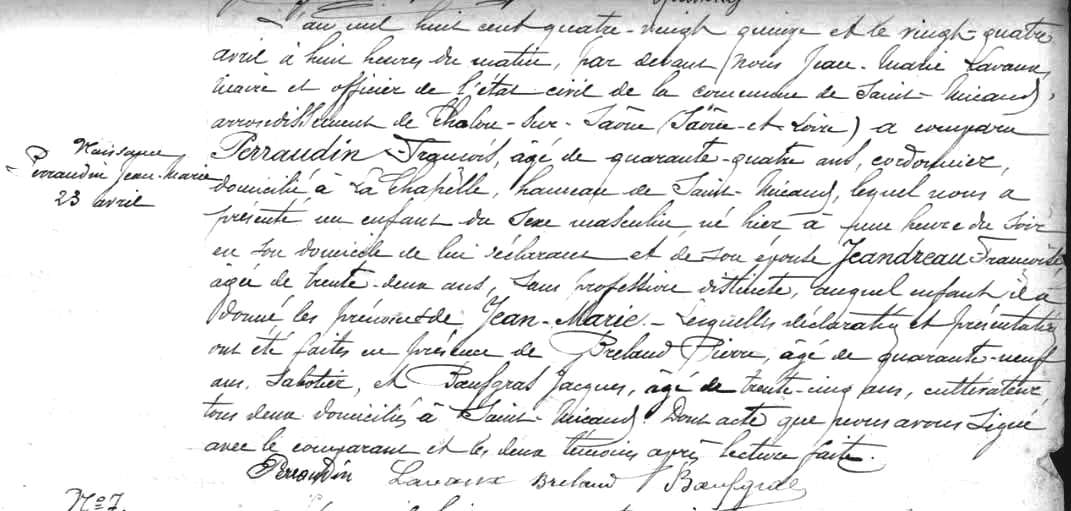 L'an mil huit cent quatre-vingt quinze et le vingt-quatre
avril à huit heures du matin, par devant nous Jean-Marie Lavaux,
Maire et officier de l'état civil de la commune de Saint-Micaud,
arrondissement de Chalon-Sur-Saône (Saône-et-Loire) a comparu
Perraudin François, âgé de quarante-quatre ans, cordonnier,
domicilié à La Chapelle, hameau de Saint-Micaud, lequel nous a
présenté un enfant du sexe masculin né hier à une heure du soir
en son domicile de lui déclarant et de son épouse Jeandreau Françoise
âgée de trente-deux ans, sans profession distincte, auquel enfant il a
donné les prénoms de Jean-Marie. - Lesquelles déclaration et présentation
ont été faites en présence de Breland Pierre, âgé de quarante-neuf
ans, Sabotier, et Bœufgras Jacques, âgé de trente-cinq ans, cultivateur,
tous deux domiciliés à Saint-Micaud. Dont acte que nous avons Signé
avec le comparant et les deux témoins après lecture faite.
Perraudin Lavaux Breland Bœufgras
Naissance
Perraudin Jean-Marie
23 avril
No 7.